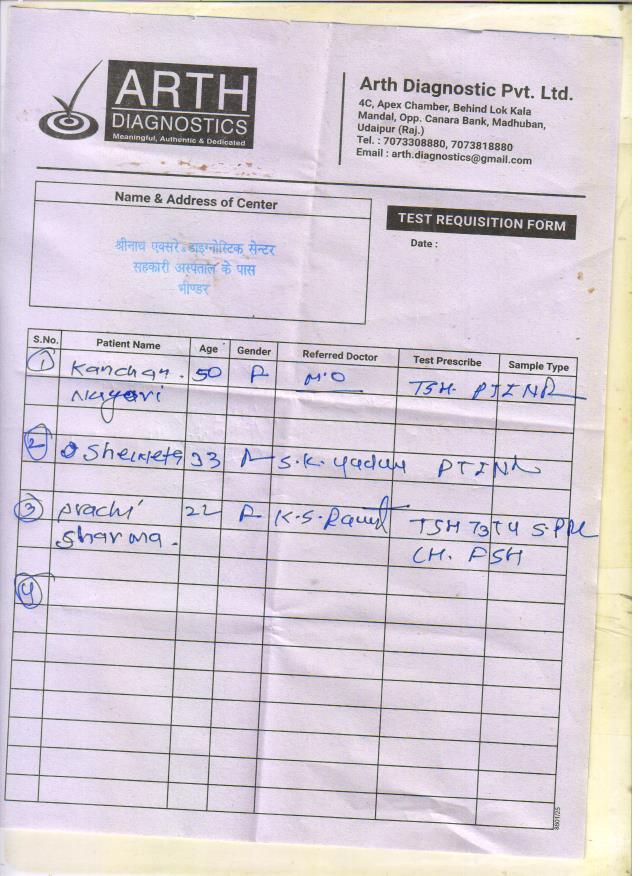 ARTH
DIAGNOSTICS
Meaningful, Authentic & Dedicated
Arth Diagnostic Pvt. Ltd.
4C, Apex Chamber, Behind Lok Kala
Mandal, Opp. Canara Bank, Madhuban,
Udaipur (Raj.)
Tel. : 7073308880, 7073818880
Email : arth.diagnostics@gmail.com
Name & Address of Center
श्रीनाथ एक्सरे डाइग्नोस्टिक सेन्टर
सहकारी अस्पताल के पास
भीण्डर
TEST REQUISITION FORM
Date :
S.No. Patient Name Age Gender Referred Doctor Test Prescribe Sample Type
1 Kanchan. 50 F M.O TSH. PTINR
Nagori
2 Sheweta 33 F S.K. yadav PTINR
3 Prachi 22 F K.S. TSH T3 T4 S.PRL
Sharma. LH. FSH
4
8601/25